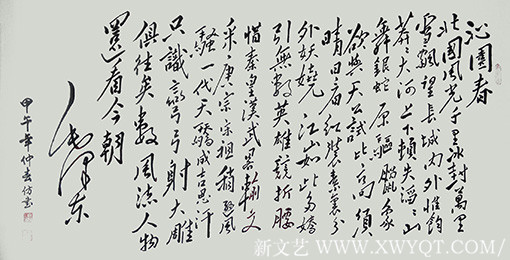 沁園春
北國風光千里冰封萬里
雪飄望長城内外惟餘
莽莽大河上下頓失滔滔山
舞銀蛇原馳蠟象
欲與天公試比高須
晴日看紅裝素裹分
外妖嬈江山如此多嬌
引無數英雄競折腰
惜秦皇漢武略輸文
采唐宗宋祖稍遜風
騷一代天驕成吉思汗
只識彎弓射大雕
俱往矣數風流人物
還看今朝
毛澤東
甲午年仲春仿書
新文艺 - WWW.XWYQT.COM